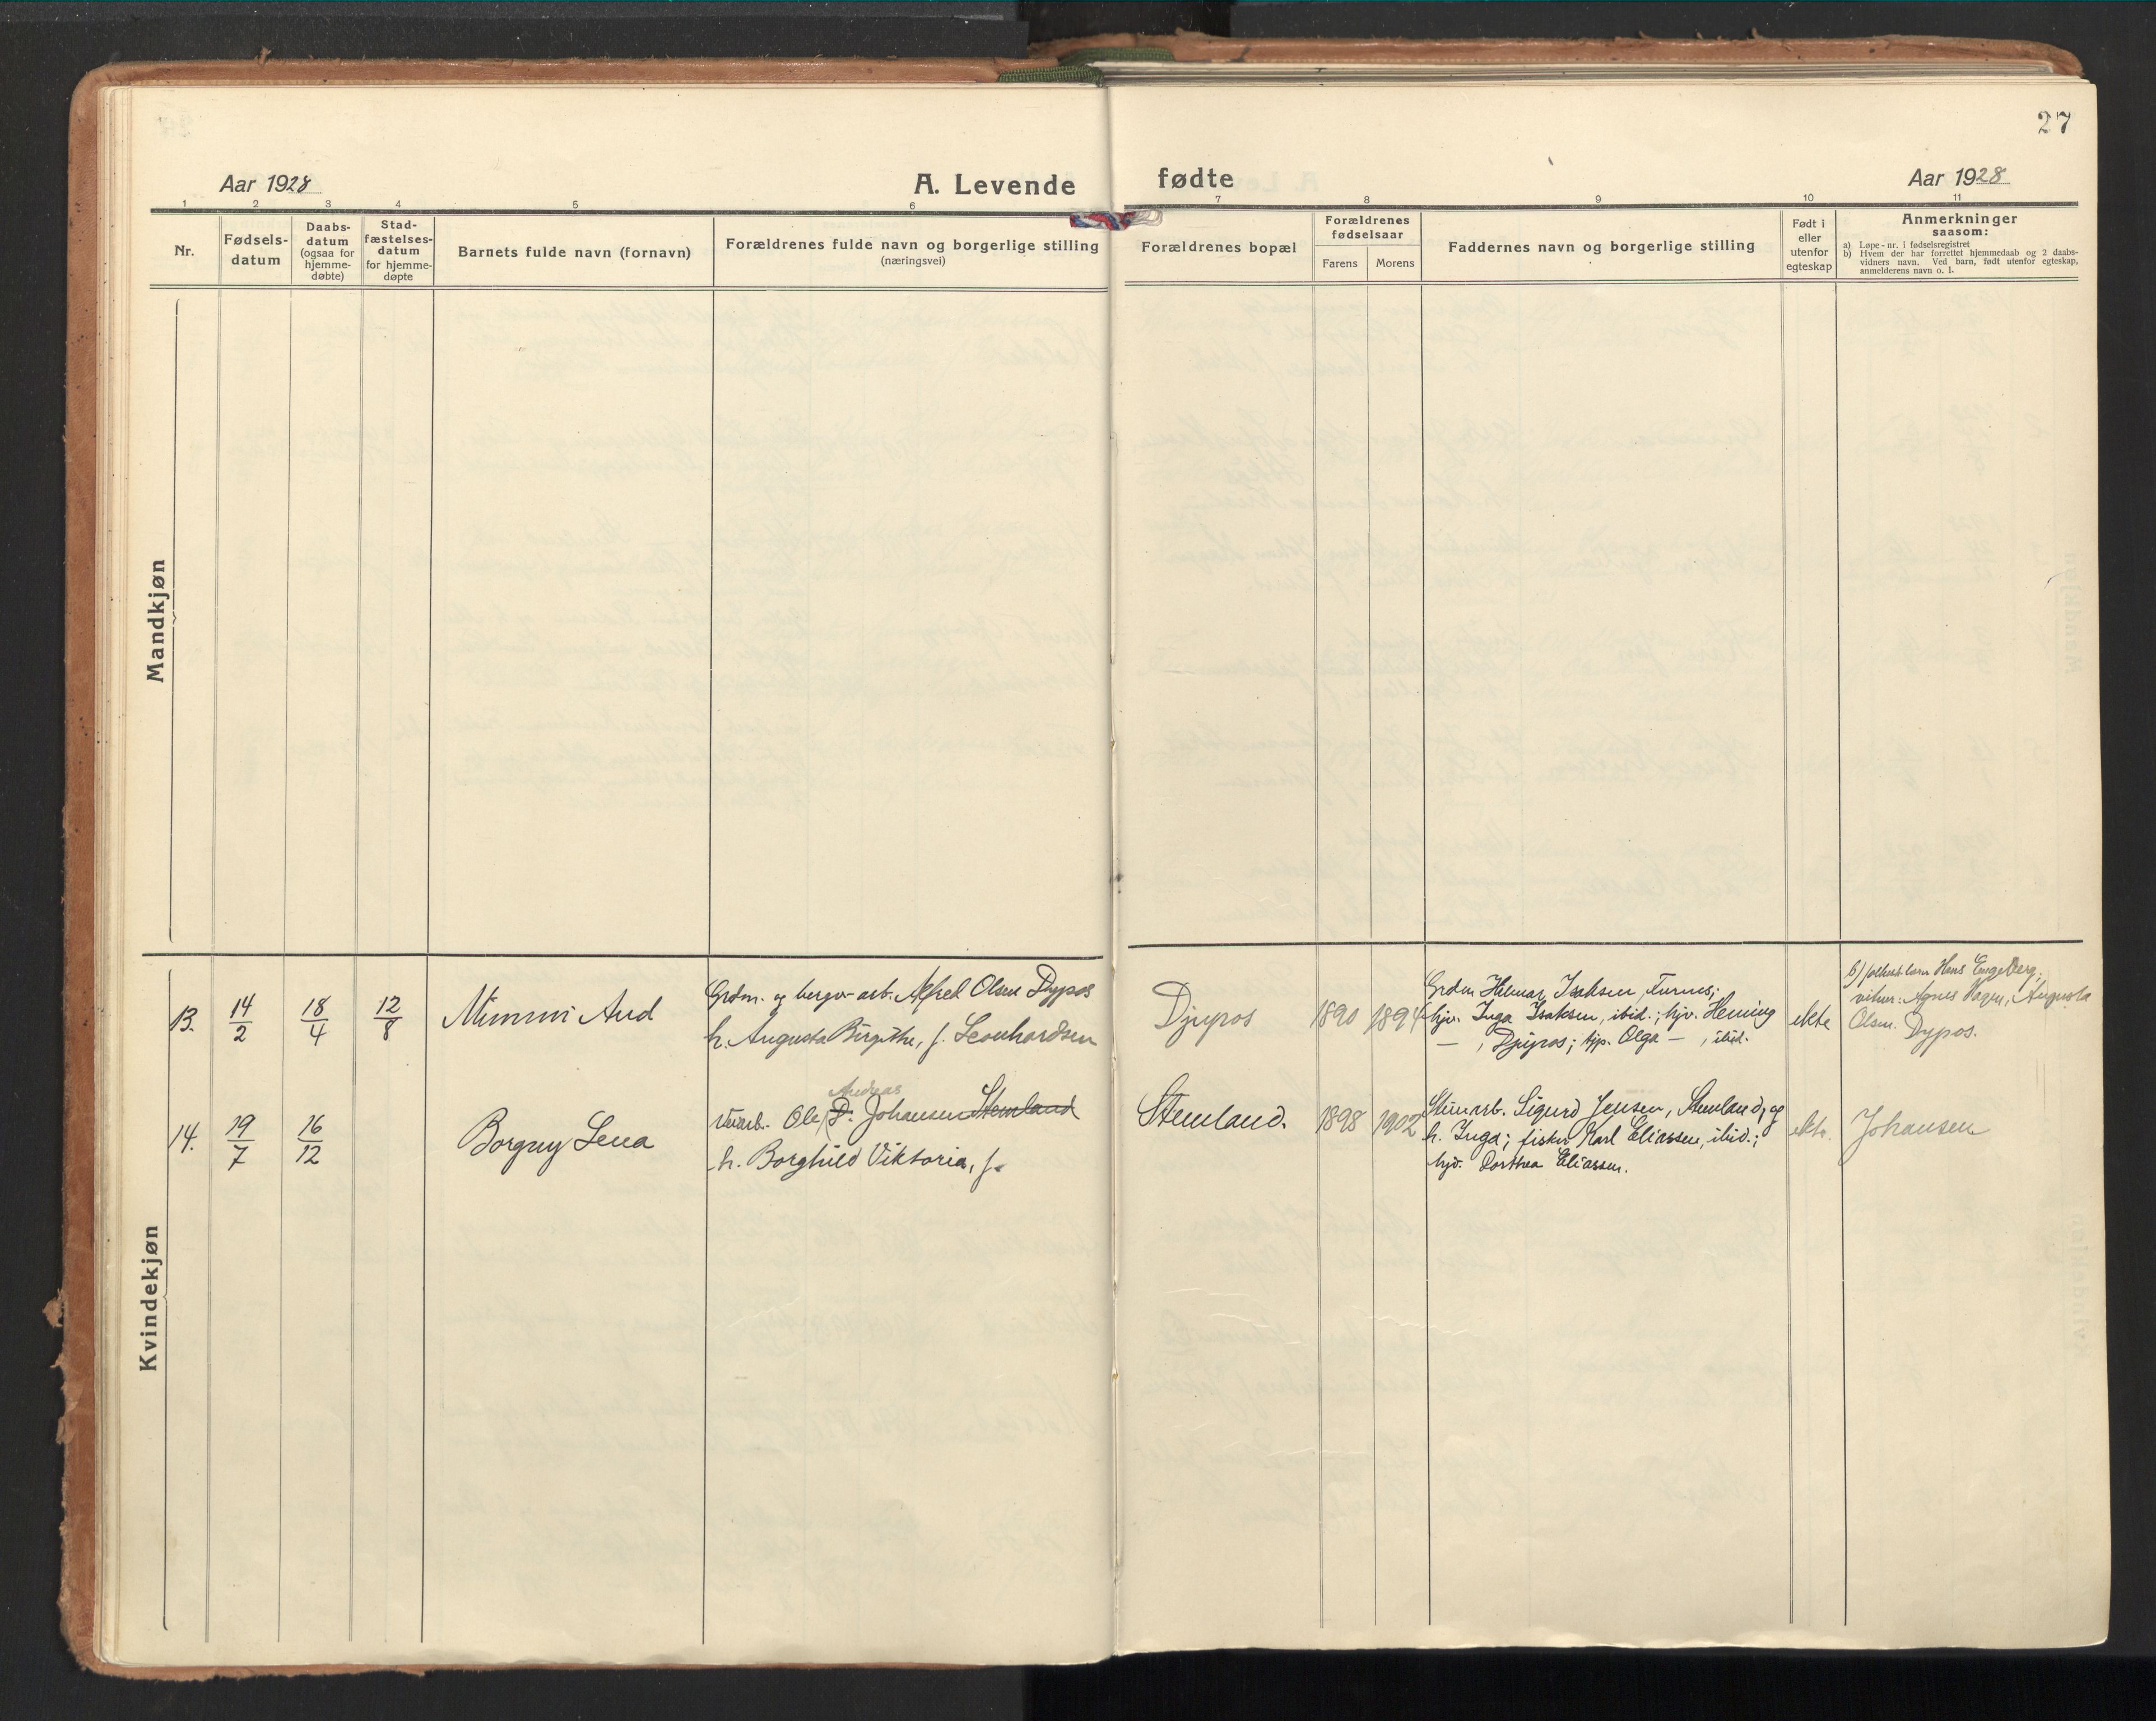 27
Aar 1928
A. Levende fødte
Aar 1928
1 2 3 4 5 6 7 8 9 10 11
Nr.
Fødsels-
datum
Daabs-
datum
(ogsaa for
hjemme-
døbte)
Stad-
fæstelses-
datum
for hjemme-
døpte
Barnets fulde navn (fornavn)
Forældrenes fulde navn og borgerlige stilling
(næringsvei)
Forældrenes bopæl
Forældrenes
fødselsaar
Farens Morens
Faddernes navn og borgerlige stilling
Født i
eller
utenfor
egteskap
Anmerkninger
saasom:
a) Løpe-nr. i fødselsregistret
b) Hvem der har forrettet hjemmedaab og 2 daabs-
vidners navn. Ved barn, født utenfor egteskap,
anmelderens navn o. l.
Mandkjøn
Kvindekjøn
13. 14/2 18/4 12/8 Mimmi Aud
Grdm. og bergv-arb. Alfred Olsen Dypos
h. Augusta Birgithe, f. Leonhardsen
Djupos 1890 1894
Grdm Hilmar Isaksen, Furnes;
hjv. Inga Isaksen, ibid.; hjv. Heming
— , Djupos; tjp. Olga — , ibid.
ekte
b) Hans Engeberg;
vitner: Agnes Hagen, Augusta
Olsen. Dypos.
14. 19/7 16/12 Borgny Lena
Andreas
Ole D. Johansen Stemland
h. Borghild Viktoria, f.
Stemland. 1898 1902
Sigurd Jensen, Stemland, og
h. Inga; fisker Karl Eliassen, ibid.;
hjv. Dorthea Eliassen.
ekte.
Johansen